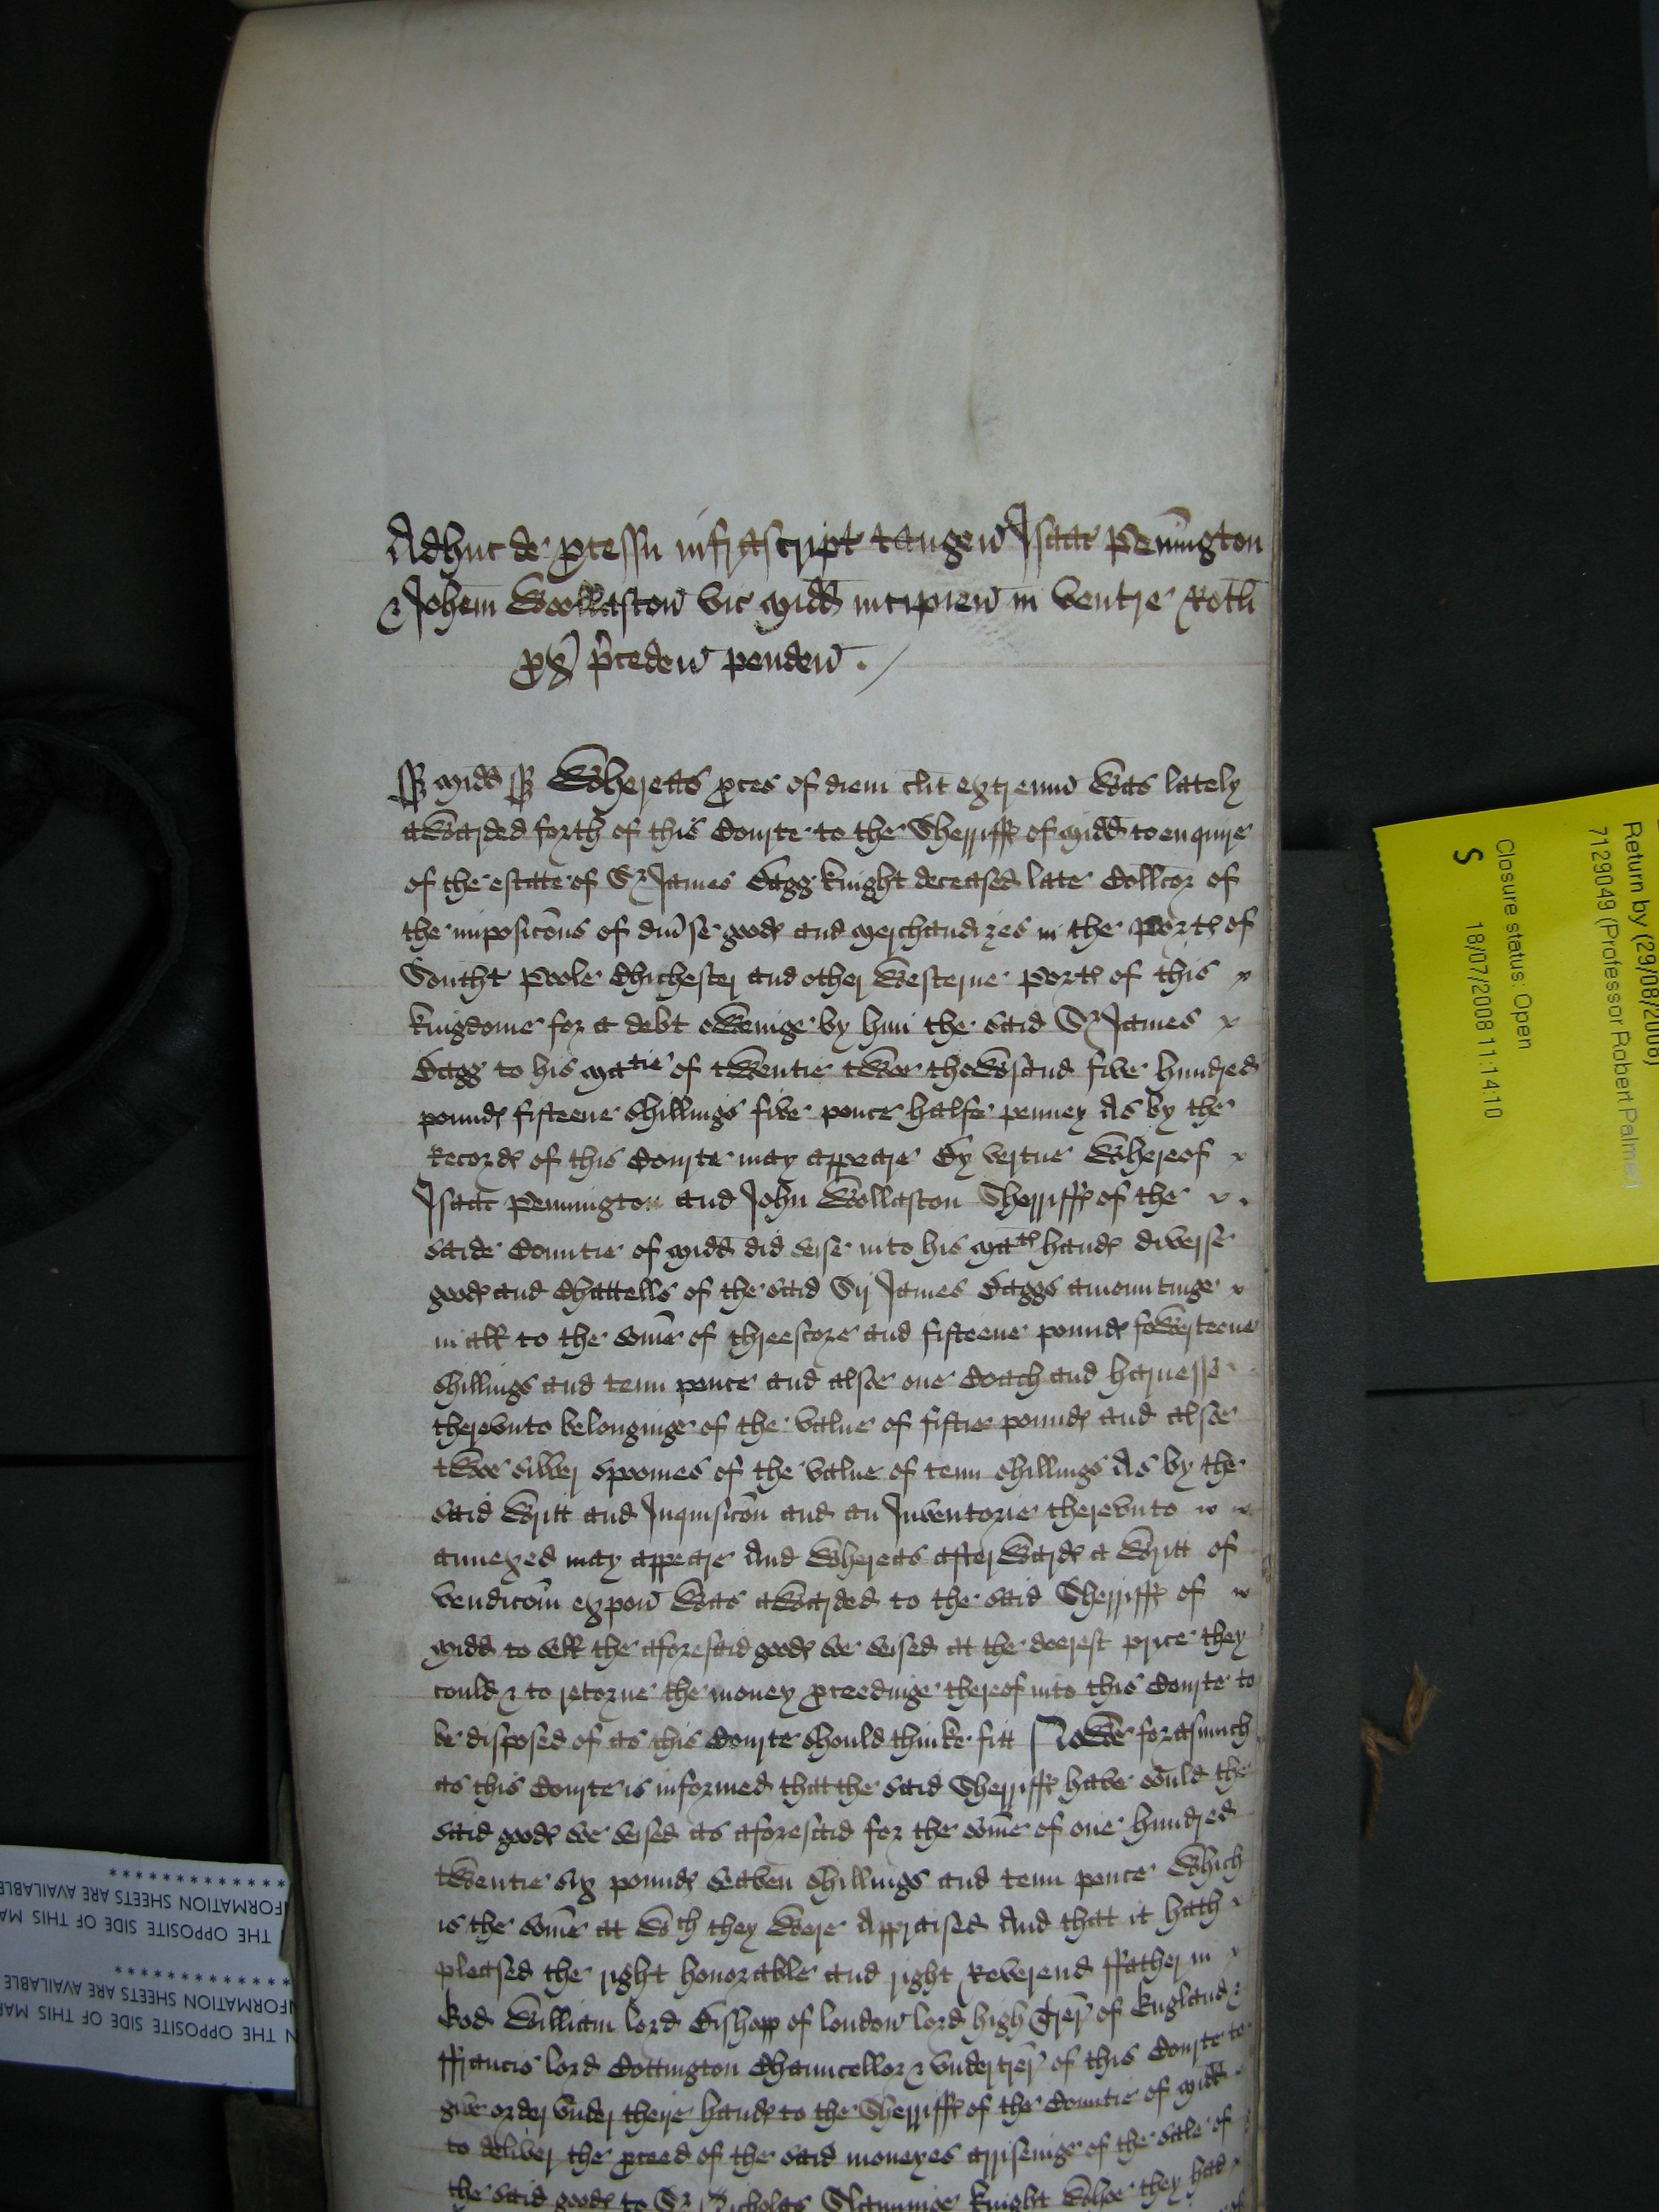 Adhuc de pcessu infrascript tangen Isaac Penington
& Johem Woollaston vic Midd incipien in ventre Rotli
px pceden penden.
ss Midd ss Whereas pces of diem clit extremu was lately
awarded forth of this Courte to the Sherriffe of Midd to enquire
of the estate of Sr James Bagg knight deceased late Collcor of
the imposicons of diuse goode and merchandizes in the Porte of
Southt Poole Chichester and other westerne Porte of this
kingdome for a debt oweinge by him the said Sr James
Bagg to his Matie of twentie twoe thowsand five hundred
pounde fifteene shillings five pence halfe penney As by the
Recorde of this Courte may appeare By vertue whereof
Isaac Pennington and John Wollaston Sherriffe of the
saide Countie of Midd did seise into his Mate hande diverse
goode and Chattells of the said Sir James Baggs amountinge
in all to the some of threescore and fifteene pounde fowerteene
shillings and tenn pence and alsoe one Coach and harnesse
therevnto belonginge of the value of fiftie pounde and alsoe
twoe silver spoones of the value of tenn shillings As by the
said writt and Inquisicon and an Inventorie therevnto
annexed may appeare And whereas afterwarde a writt of
vendicom expon was awarded to the said Sherriffe of
Midd to sell the aforesaid goode soe seised att the deerest price they
could & to retorne the money pceedinge thereof into this Courte to
be disposed of as this Courte should thinke fitt Nowe forasmuch
as this Courte is informed that the said Sherriffe have sould the
said goode soe seised as aforesaid for the some of one hundred
twentie six pounde seaven shillings and tenn pence which
is the some at wch they were Appraised And that it hath
pleased the right honorable and right Reverend ffather in
God William lord Bishopp of london lord high Trer of England &
ffrancis lord Cottington Chauncellor & vndertrer of this Courte to
give order vnder theire hande to the Sherriffe of the Countie of Midd
to deliver the pceed of the said moneyes ariseinge of the sale of
the said goode to Sr Nicholas Slanninge knight whoe they had
Return by (29/08/2008)
7129049 (Professor Robert Palmer)
Closure status: Open
18/07/2008 11:14:10
S
N THE OPPOSITE SIDE OF THIS MA
NFORMATION SHEETS ARE AVAILABLE
***************
THE OPPOSITE SIDE OF THIS MA
FORMATION SHEETS ARE AVAILABL
*************